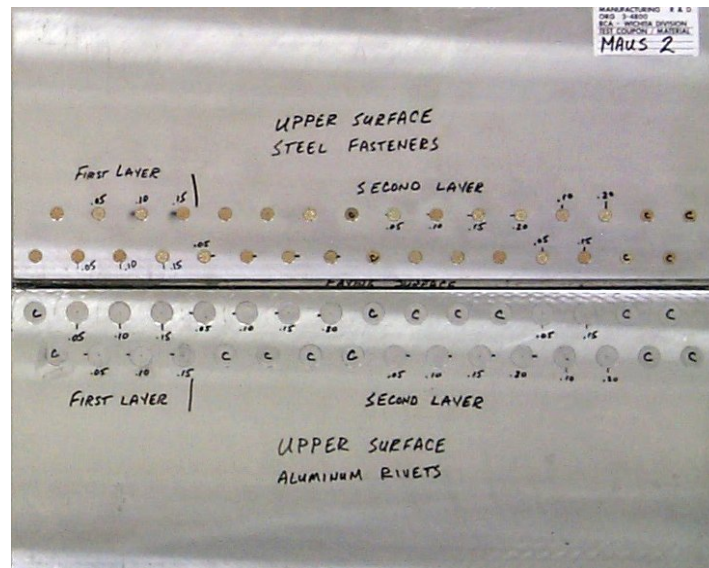 MANUFACTURING R & D
ORG 3-4800
BCA - WICHITA DIVISION
TEST COUPON / MATERIAL
MAUS 2
UPPER SURFACE
STEEL FASTENERS
FIRST LAYER
SECOND LAYER
.05 .10 .15 .10 .20
C C C
.05 .10 .15 .20
.05 .05 .15
C C C
.05 .10 .15
FAYING SURFACE
C C C C C C C
.05 .10 .15 .05 .10 .15 .20 .05 .15
C C C C C C C
.05 .10 .15 .05 .10 .15 .20 .10 .20
FIRST LAYER
SECOND LAYER
UPPER SURFACE
ALUMINUM RIVETS